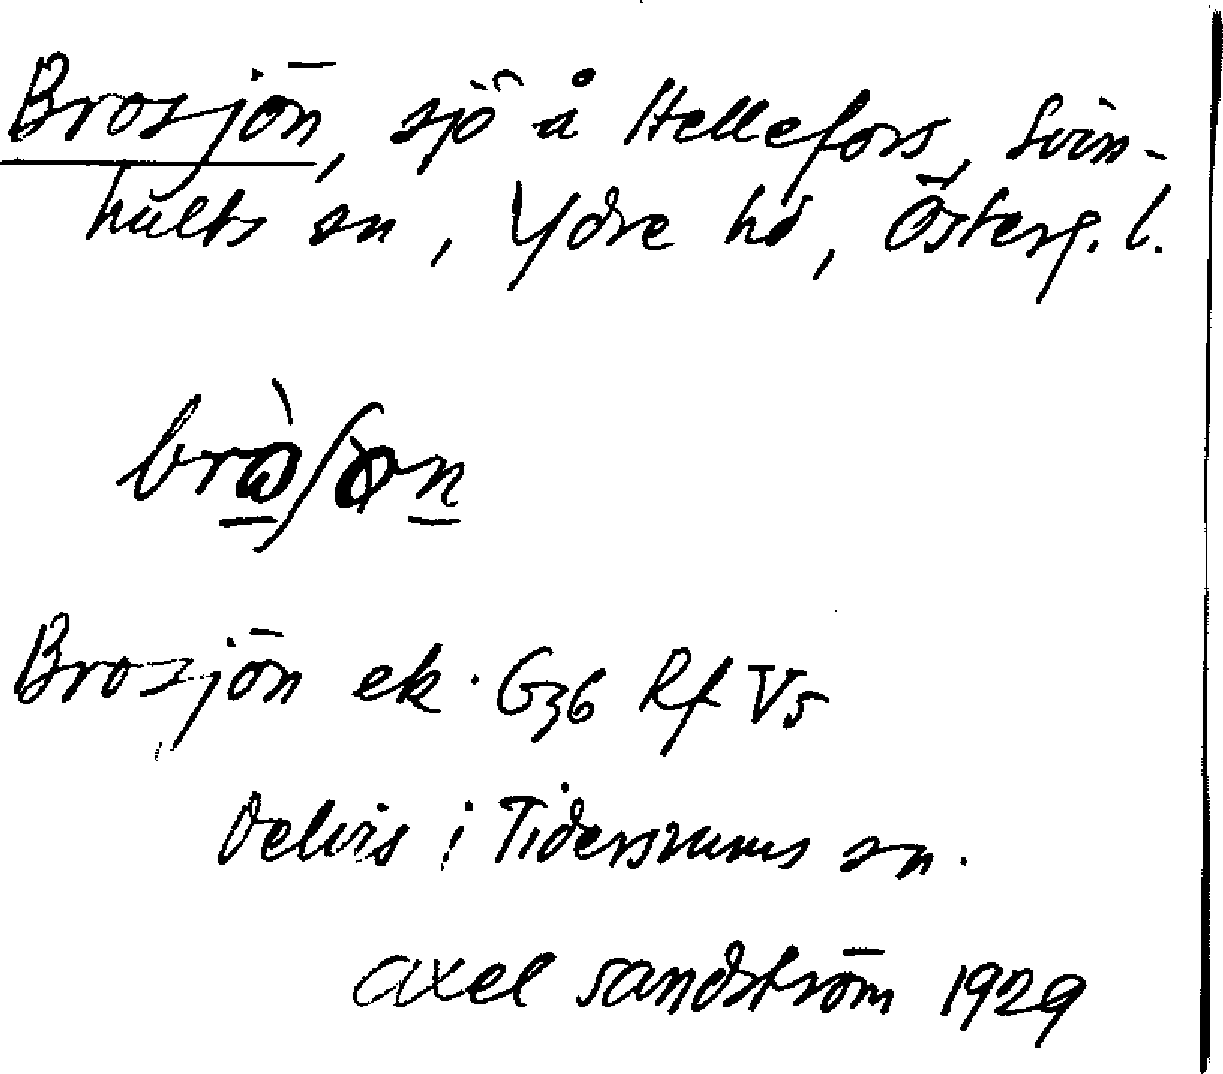 Brosjön, sjö å Hellefors, Svin-
hults sn, Ydre hd, Österg. l.
Brosjön ek. G36 Rf V5
Delvis i Tidersrums sn.
Axel Sandström 1929